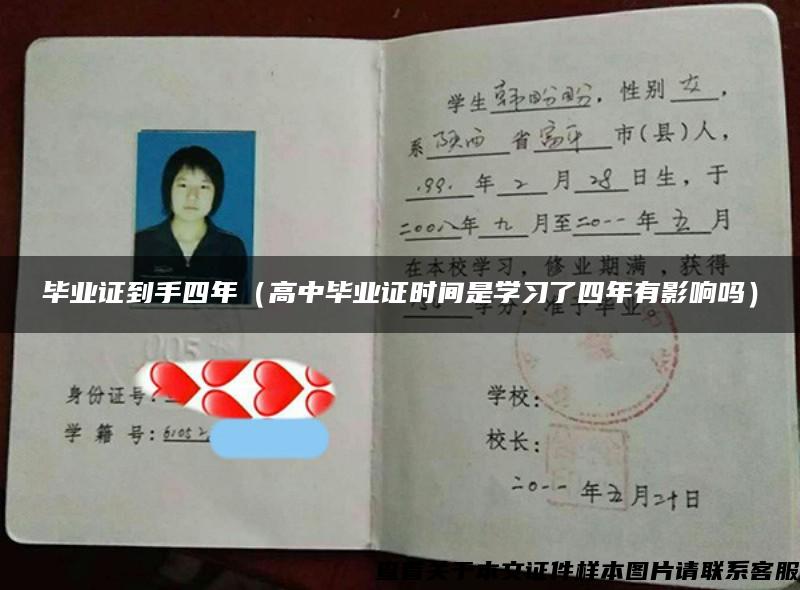 学生韩盼盼，性别女，
系陕西省富平市(县)人，
1991年2月28日生，于
二00八年九月至二0一一年五月
在本校学习，修业期满，获得
毕业证到手四年（高中毕业证时间是学习了四年有影响吗）
学分，准予毕业。
005
身份证号：
学籍号：61052
学校：
校长：
二0一一年五月二十日
查看关于本文证件样本图片请联系客服